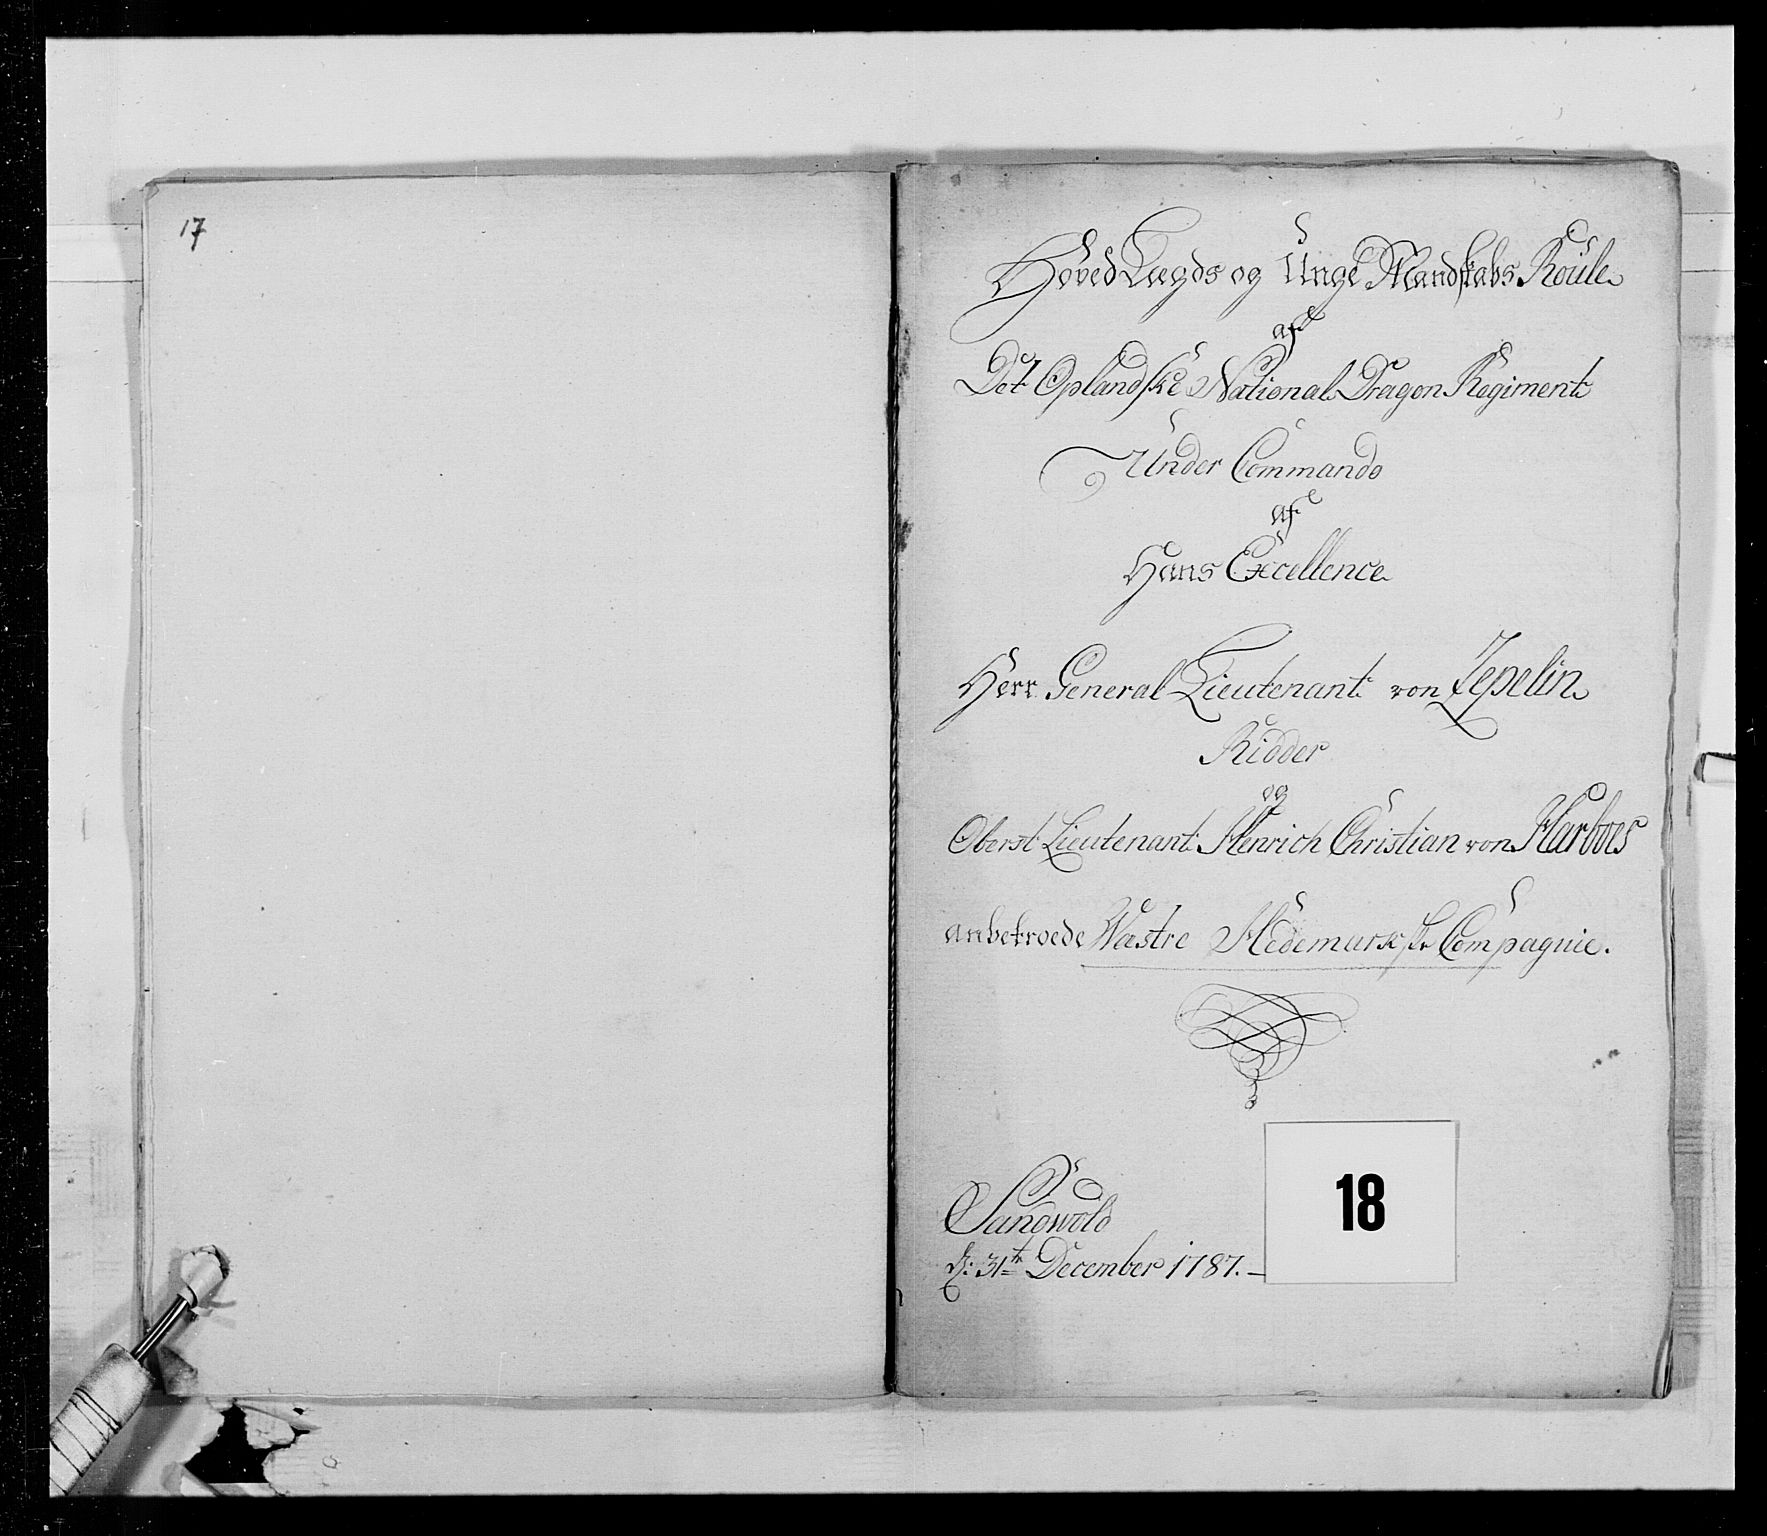 17
Hoved Lægds og Unge Mandskabs Roule
af
Det Oplandske National Dragon Regiment
Under Commando
af
Hans Excellence
Herr General Lieutenant von Zepelin
Ridder
og
Oberst Lieutenant Henrich Christian von Harboes
anbetroede Wæstre Hedemarkske Compagnie.
Sandwold
d: 31te December 1787.
18